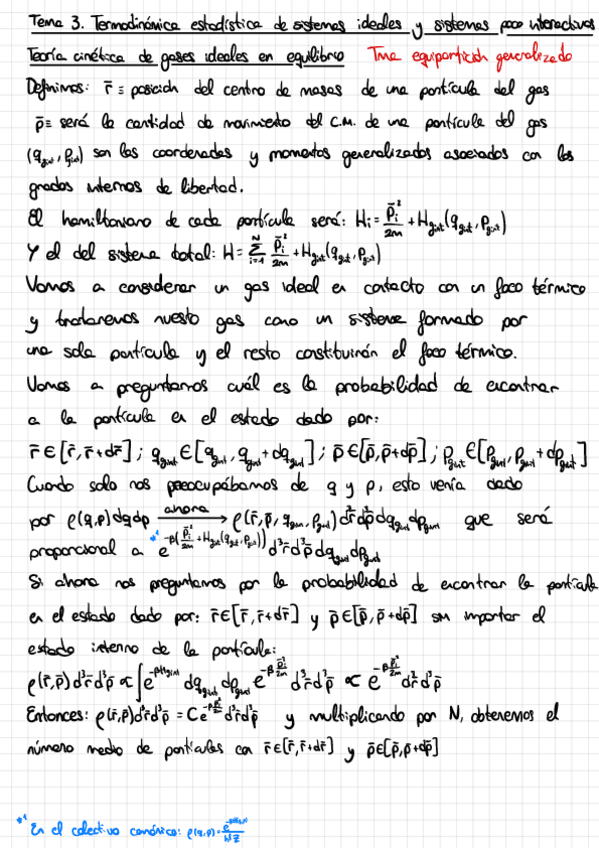 Tema 3. Termodinámica estadística de sistemas ideales y sistemas poco interactivos
Teoría cinética de gases ideales en equilibrio Tma equipartición generalizado
Definimos: r̄ ≡ posición del centro de masas de una partícula del gas
p̄ ≡ será la cantidad de movimiento del C.M. de una partícula del gas
(q_gint, p_gint) son las coordenadas y momentos generalizados asociados con los
grados internos de libertad.
El hamiltoniano de cada partícula será: Hi = p̄i²/2m + H_gint(q_gint, p_gint)
Y el del sistema total: H = Σ_{i=1}^{N} p̄i²/2m + H_gint(q_gint, p_gint)
Vamos a considerar un gas ideal en contacto con un foco térmico
y trataremos nuestro gas como un sistema formado por
una sola partícula y el resto constituirán el foco térmico.
Vamos a preguntarnos cuál es la probabilidad de encontrar
a la partícula en el estado dado por:
r̄ ∈ [r̄, r̄+dr̄]; q_gint ∈ [q_gint, q_gint+dq_gint]; p̄ ∈ [p̄, p̄+dp̄]; p_gint ∈ [p_gint, p_gint+dp_gint]
Cuando solo nos preocupábamos de q y p, esto venía dado
por ρ(q,p)dqdp ahora → ρ(r̄, p̄, q_gint, p_gint) d³r̄ d³p̄ dq_gint dp_gint que será
proporcional a *¹ e^{-β(p̄i²/2m + H_gint(q_gint, p_gint))} d³r̄ d³p̄ dq_gint dp_gint
Si ahora nos preguntamos por la probabilidad de encontrar la partícula
en el estado dado por: r̄ ∈ [r̄, r̄+dr̄] y p̄ ∈ [p̄, p̄+dp̄] sin importar el
estado interno de la partícula:
ρ(r̄, p̄) d³r̄ d³p̄ ∝ ∫ e^{-βH_gint} dq_gint dp_gint e^{-β p̄i²/2m} d³r̄ d³p̄ ∝ e^{-β p̄i²/2m} d³r̄ d³p̄
Entonces: ρ(r̄, p̄) d³r̄ d³p̄ = C e^{-β p̄²/2m} d³r̄ d³p̄ y multiplicando por N, obtenemos el
número medio de partículas con r̄ ∈ [r̄, r̄+dr̄] y p̄ ∈ [p̄, p̄+dp̄]
*¹ En el colectivo canónico: ρ(q,p) =